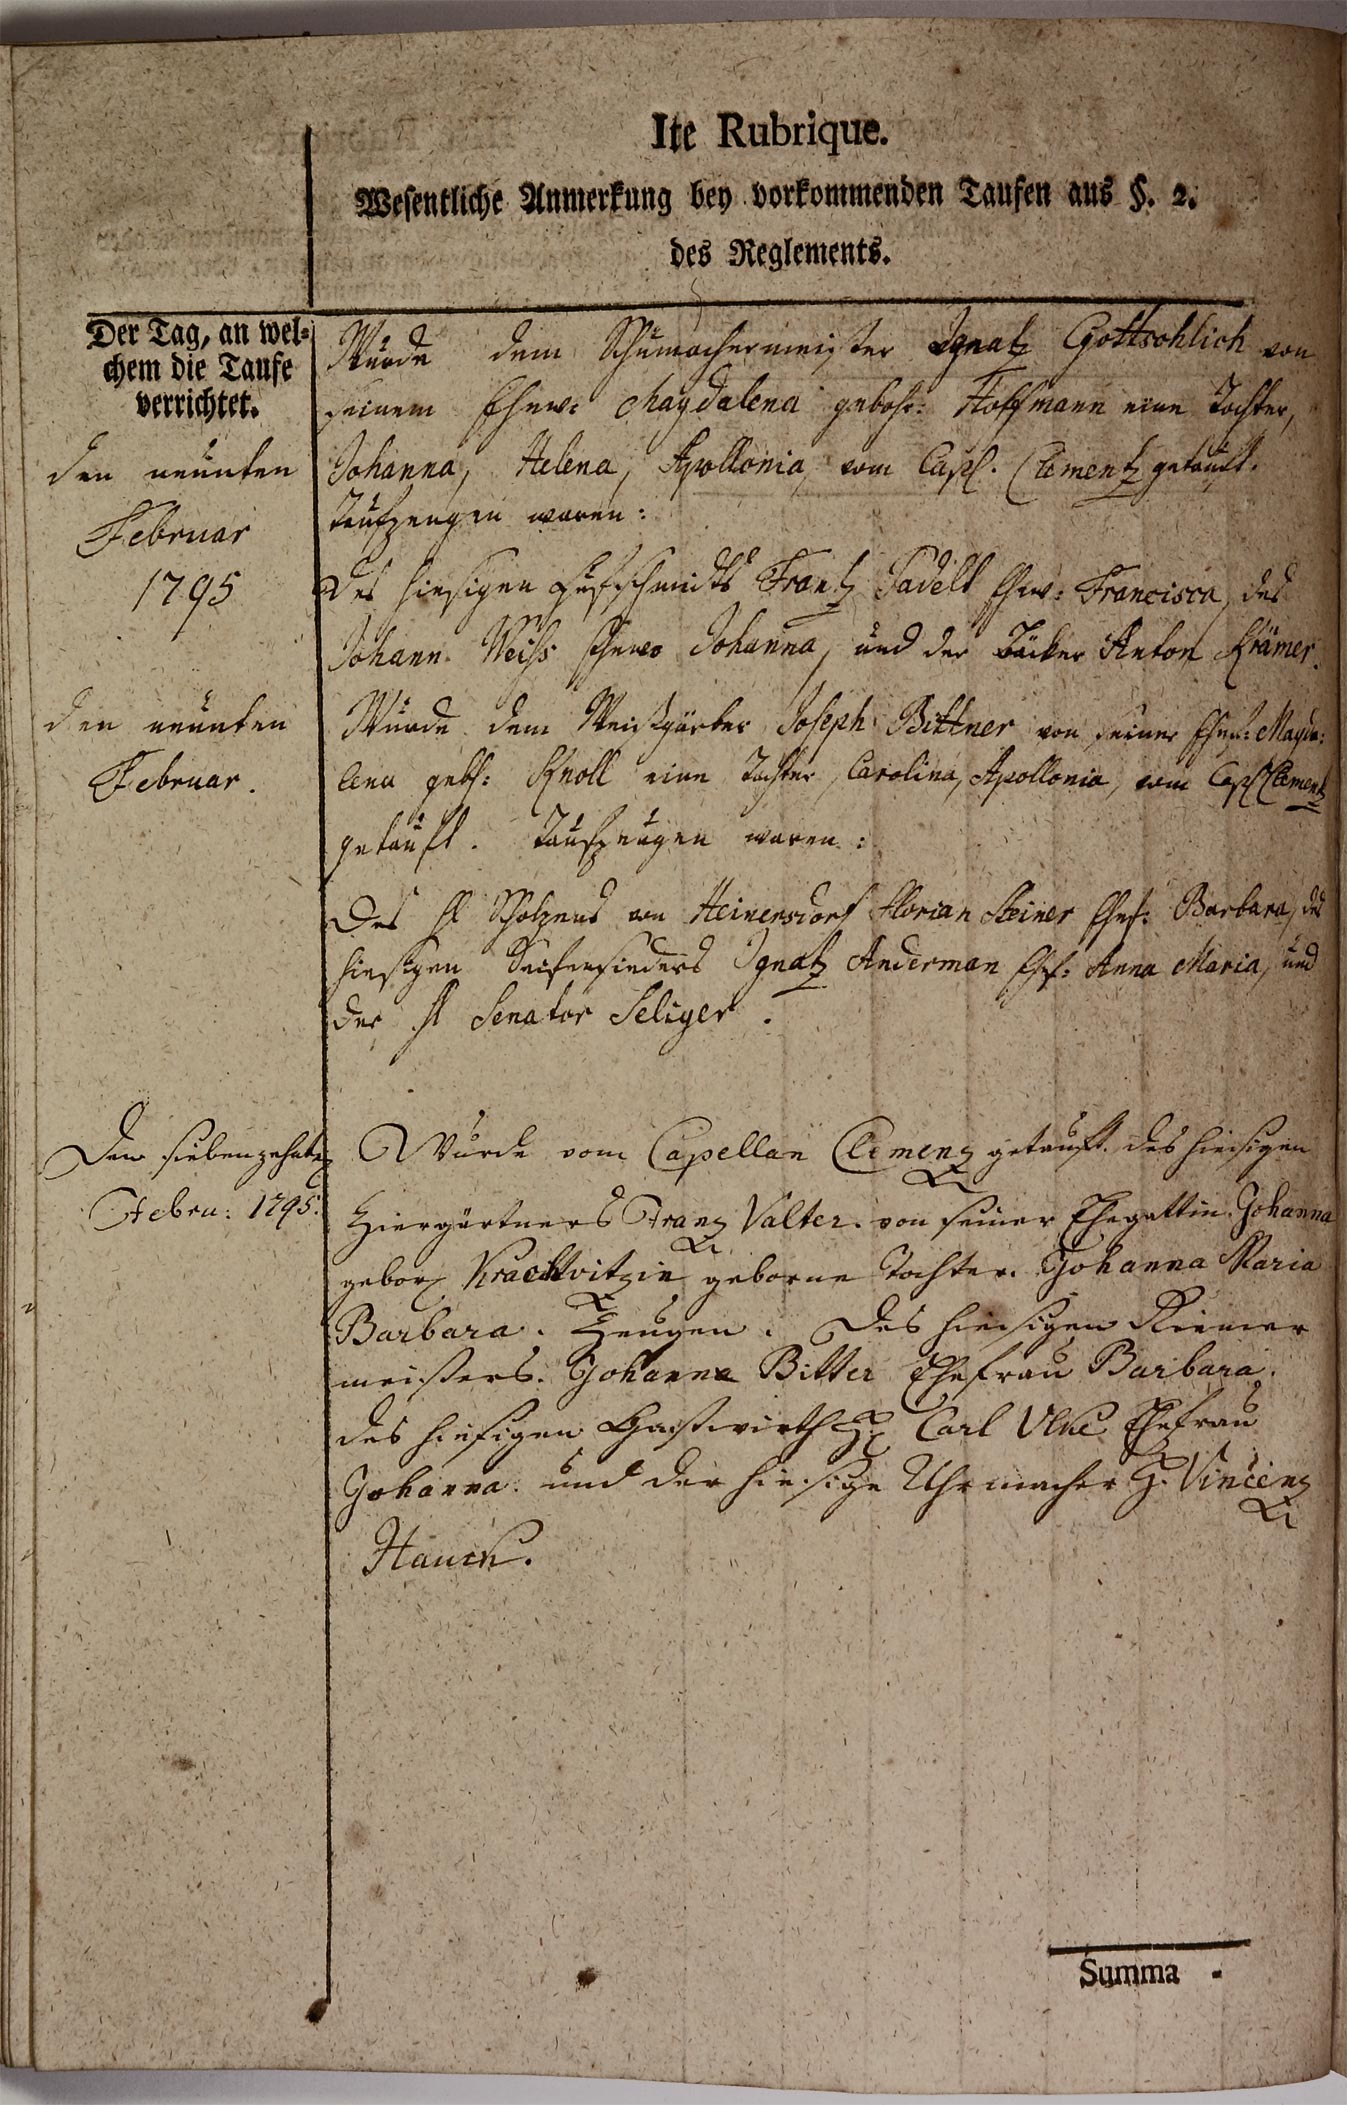 Ite Rubrique.
Wesentliche Anmerkung bey vorkommenden Taufen aus §. 2.
des Reglements.
Der Tag, an wel-
chem die Taufe
verrichtet.
den neunten
Februar
1795
Wurde dem Schumachermeister Ignatz Gottschlich von
seinem Ehew: Magdalena gebohr: Hoffmann eine Tochter,
Johanna, Helena, Apollonia, vom Capl. Clementz getauft.
Taufzeugen waren:
Des hiesigen Hufschmidts Frantz Padelt Ehw: Francisca, des
Johann Weiss Ehewo Johanna, und der Bäcker Anton Krämer.
den neunten
Februar.
Wurde dem Weisgärber Joseph Bittner von seiner Ehef: Magda:
lena gebh: Knoll eine Tochter, Carolina, Apollonia, vom Capl Clementz
getauft. Taufzeugen waren:
Des H Scholzens von Heinersdorf Florian Steiner Ehef: Barbara, des
hiesigen Seifensieders Ignatz Anderman Ehf: Anna Maria, und
der H Senator Seliger.
Den siebenzehnten
Febru: 1795.
Wurde vom Capellan Clemenz getauft. des hiesigen
Ziergärtners Franz Valter. von seiner Ehegattin Johanna
gebor geborne Tochter. Johanna Maria
Barbara. Zeugen. Des hiesigen Riemer
meisters. Johann Bitter Ehefrau Barbara.
des hiesigen Gastwirth H Carl Ehefrau
Johanna. und der hiesige Uhrmacher H. Vincenz
Hauck.
Summa -